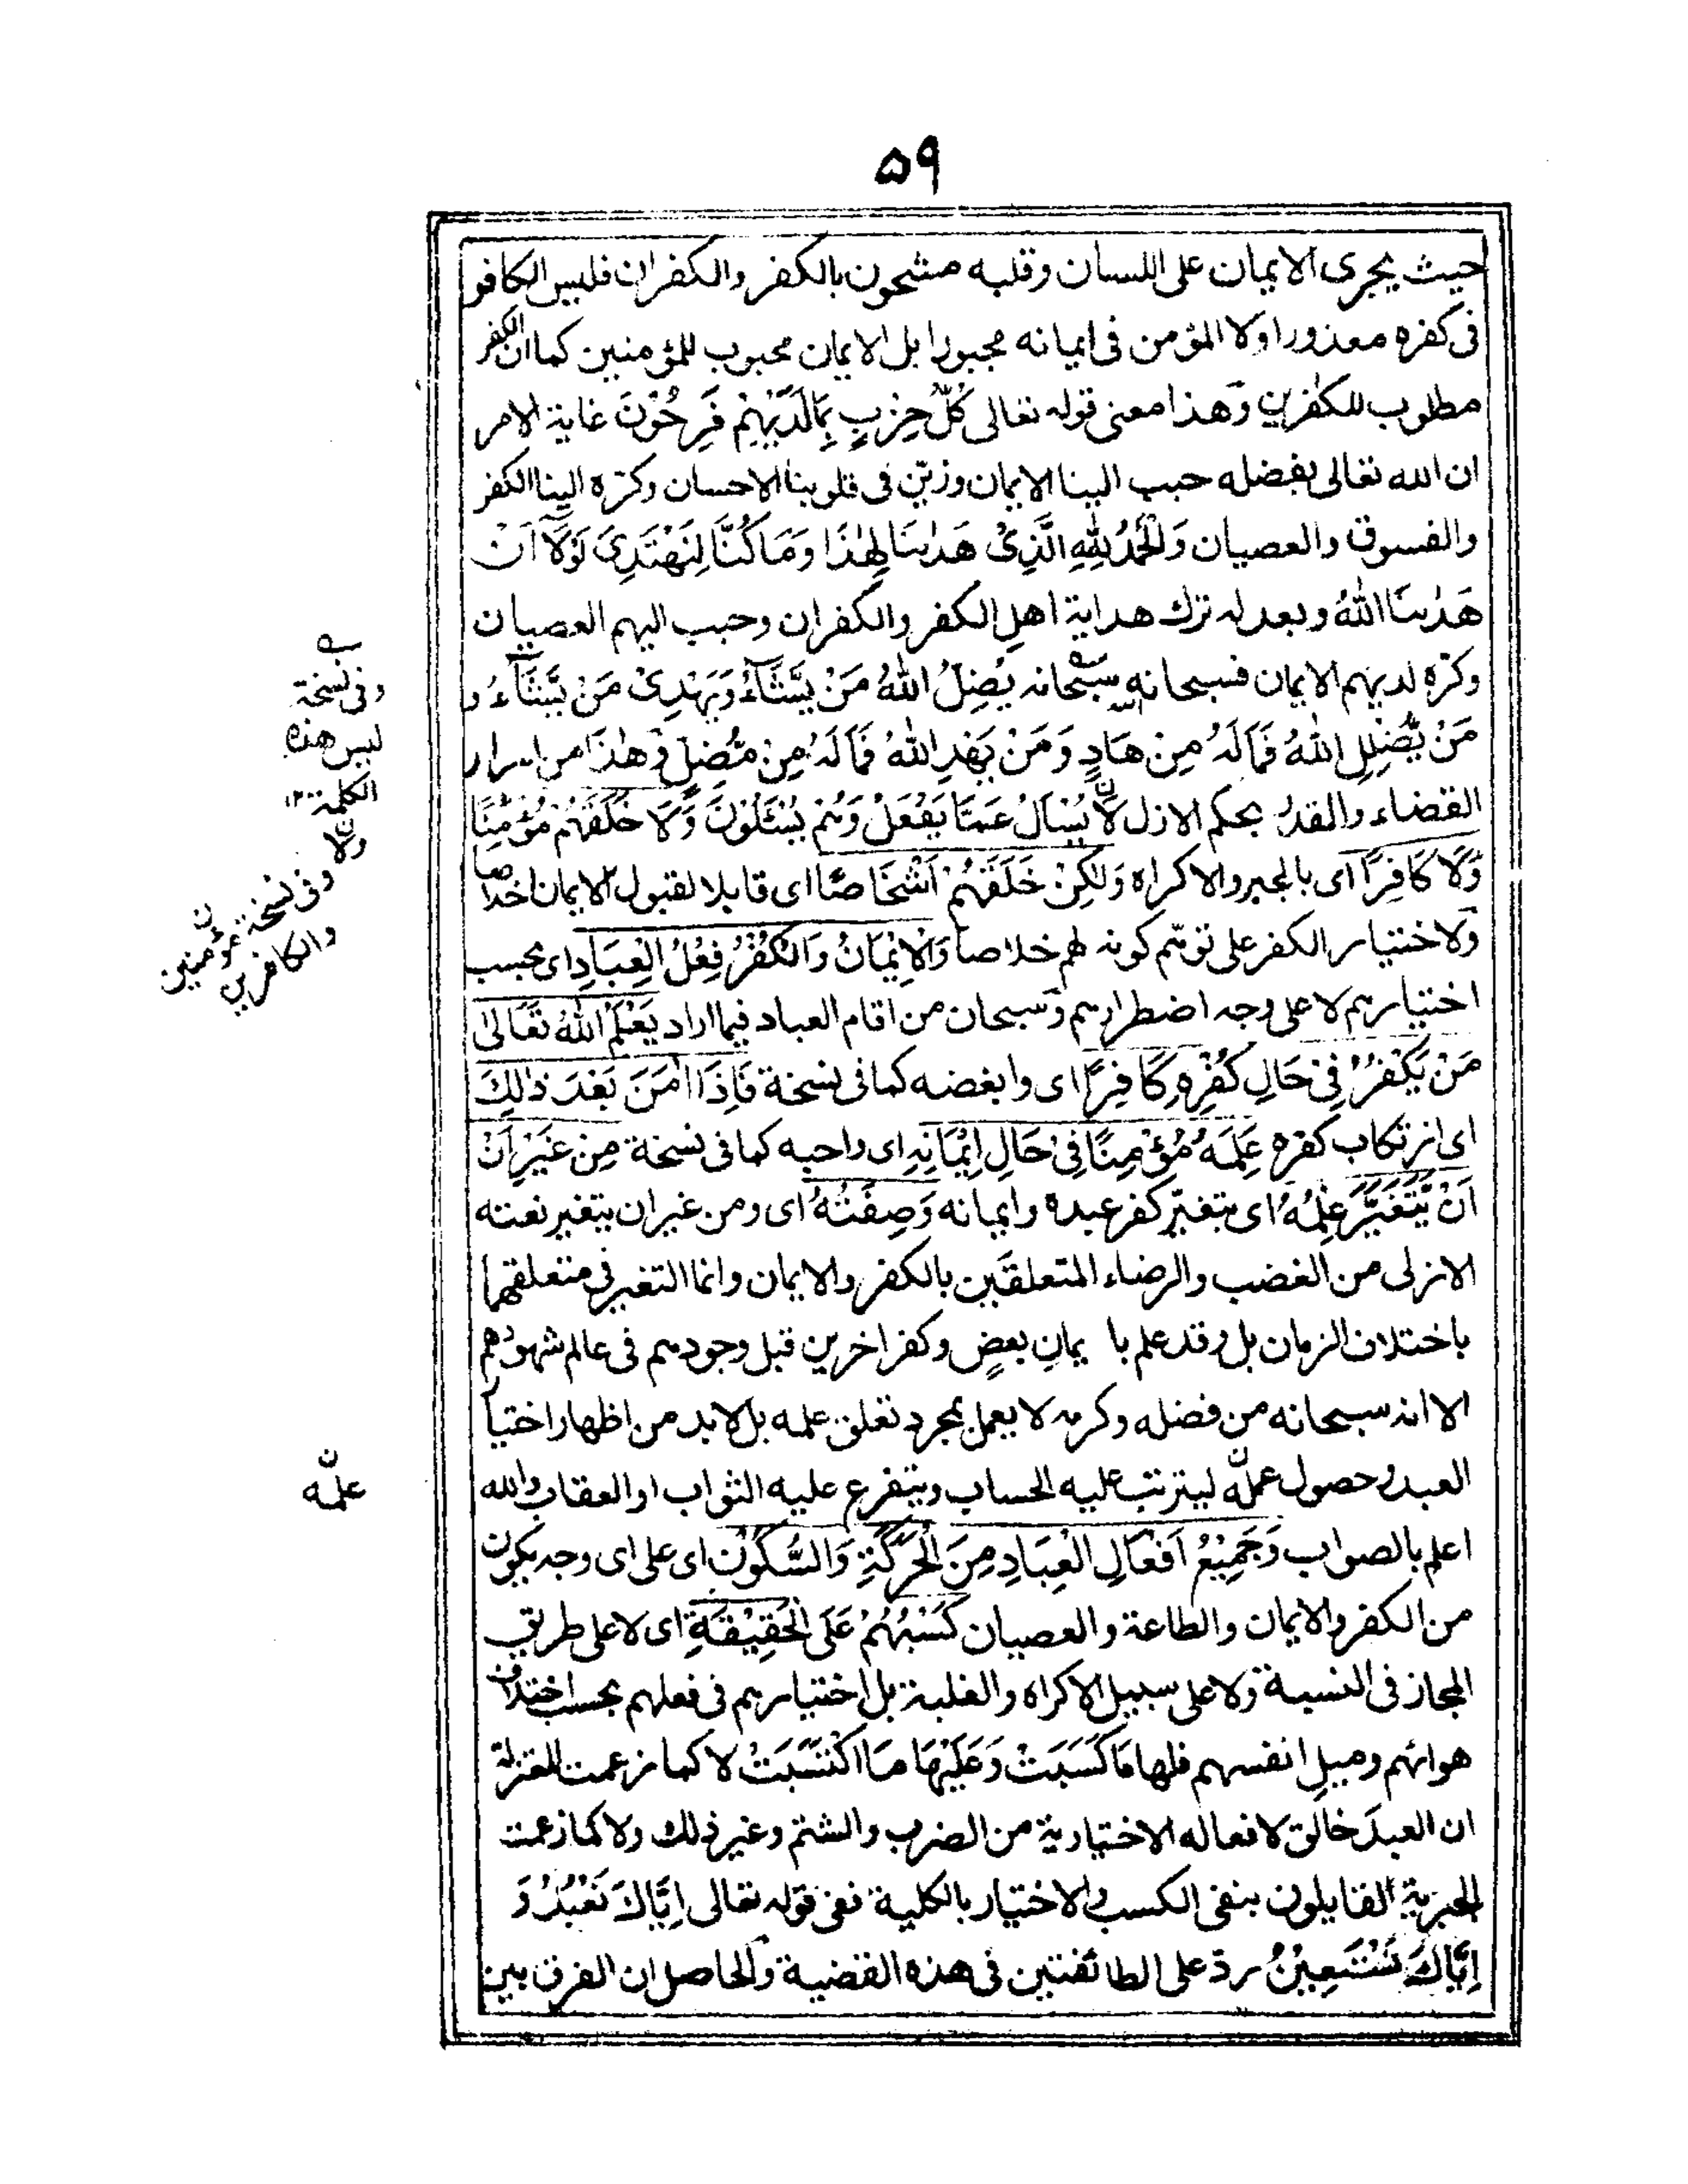 ۵۹
حيث يجرى الايمان على اللسان وقلبه مشحون بالكفر والكفران فليس الكافر
فى كفره معذورا ولا المؤمن فى ايمانه مجبورا بل الايمان محبوب للمؤمنين كما ان الكفر
مطلوب للكفرين وهذا معنى قوله تعالى كُلُّ حِزْبٍ بِمَا لَدَيْهِمْ فَرِحُوْنَ غاية الامر
ان الله تعالى بفضله حبب الينا الايمان وزيّن فى قلوبنا الاحسان وكرّه الينا الكفر
والفسوق والعصيان وَالْحَمْدُ لِلّٰهِ الَّذِىْ هَدٰىنَا لِهٰذَا وَمَا كُنَّا لِنَهْتَدِىَ لَوْلَآ اَنْ
هَدٰىنَا اللّٰهُ وبعدله ترك هداية اهل الكفر والكفران وحبب اليهم العصيان
وكرّه لديهم الايمان فسبحانه سبحانه يُضِلُّ اللّٰهُ مَنْ يَّشَآءُ وَيَهْدِىْ مَنْ يَّشَآءُ و
مَنْ يُّضْلِلِ اللّٰهُ فَمَا لَهٗ مِنْ هَادٍ وَمَنْ يَهْدِ اللّٰهُ فَمَا لَهٗ مِنْ مُّضِلٍّ وهٰذا من اسرار
القضاء والقدر بحكم الازل لَا يُسْاَلُ عَمَّا يَفْعَلُ وَهُمْ يُسْئَلُوْنَ وَّلَا خَلَقَهُمْ مُؤْمِنًا
وَّلَا كَافِرًا اى بالجبر والاكراه وَلٰكِنْ خَلَقَهُمْ اَشْخَاصًا اى قابلا لقبول الايمان اخلاصا
ولاختيار الكفر على توهّم كونه لهم خلاصا وَالْاِيْمَانُ وَالْكُفْرُ فِعْلُ الْعِبَادِ اى بحسب
اختيارهم لا على وجه اضطرارهم وسبحان من اقام العباد فيما اراد يَعْلَمُ اللّٰهُ تَعَالٰى
مَنْ يَكْفُرُ فِىْ حَالِ كُفْرِهٖ كَافِرًا اى وابغضه كما فى نسخة فَاِذَا اٰمَنَ بَعْدَ ذٰلِكَ
اى ارتكاب كفره عَلِمَهٗ مُؤْمِنًا فِىْ حَالِ اِيْمَانِهٖ اى واحبه كما فى نسخة مِنْ غَيْرِ اَنْ
اَنْ يَّتَغَيَّرَ عِلْمُهٗ اى بتغيّر كفر عبده وايمانه وَصِفَتُهٗ اى ومن غير ان يتغير نعته
الازلى من الغضب والرضاء المتعلقين بالكفر والايمان وانما التغير فى متعلقهما
باختلاف الزمان بل وقد علم با يمانِ بعضٍ وكفر اخرين قبل وجودهم فى عالم شهودهم
الا انه سبحانه من فضله وكرمه لا يعمل بمجرد تعلق علمه بل لا بد من اظهار اختيا
العبد وحصول عمله ليترتب عليه الحساب ويتفرع عليه الثواب او العقاب والله
اعلم بالصواب وَجَمِيْعُ اَفْعَالِ الْعِبَادِ مِنَ الْحَرَكَةِ وَالسُّكُوْنِ اى على اى وجه يكون
من الكفر والايمان والطاعة والعصيان كَسْبُهُمْ عَلَى الْحَقِيْقَةِ اى لا على طريق
المجاز فى النسبة ولا على سبيل الاكراه والغلبة بل اختيارهم فى فعلهم بحسب اختلاف
هوائهم وميل انفسهم فلها مَا كَسَبَتْ وَعَلَيْهَا مَا اكْتَسَبَتْ لا كما زعمت المعتزلة
ان العبدَ خالق لافعاله الاختيارية من الضرب والشتم وغير ذلك ولا كما زعمت
الجبرية القايلون بنفى الكسب والاختيار بالكلية ففى قوله تعالى اِيَّاكَ نَعْبُدُ وَ
اِيَّاكَ نَسْتَعِيْنُ ردّ على الطائفتين فى هذه القضية والحاصل ان الفرق بين
وفى نسخة
ليس هذه
الكلمة ۱۲
ولا
وفى نسخة مؤمنين
والكافرين
علمه